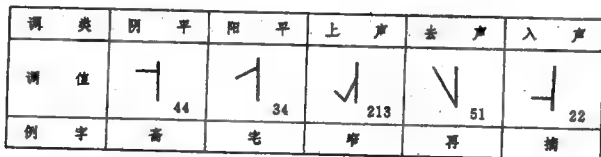 调类 阴平 阳平 上声 去声 入声
调值 44 34 213 51 22
例字 高 宅 窄 再 摘